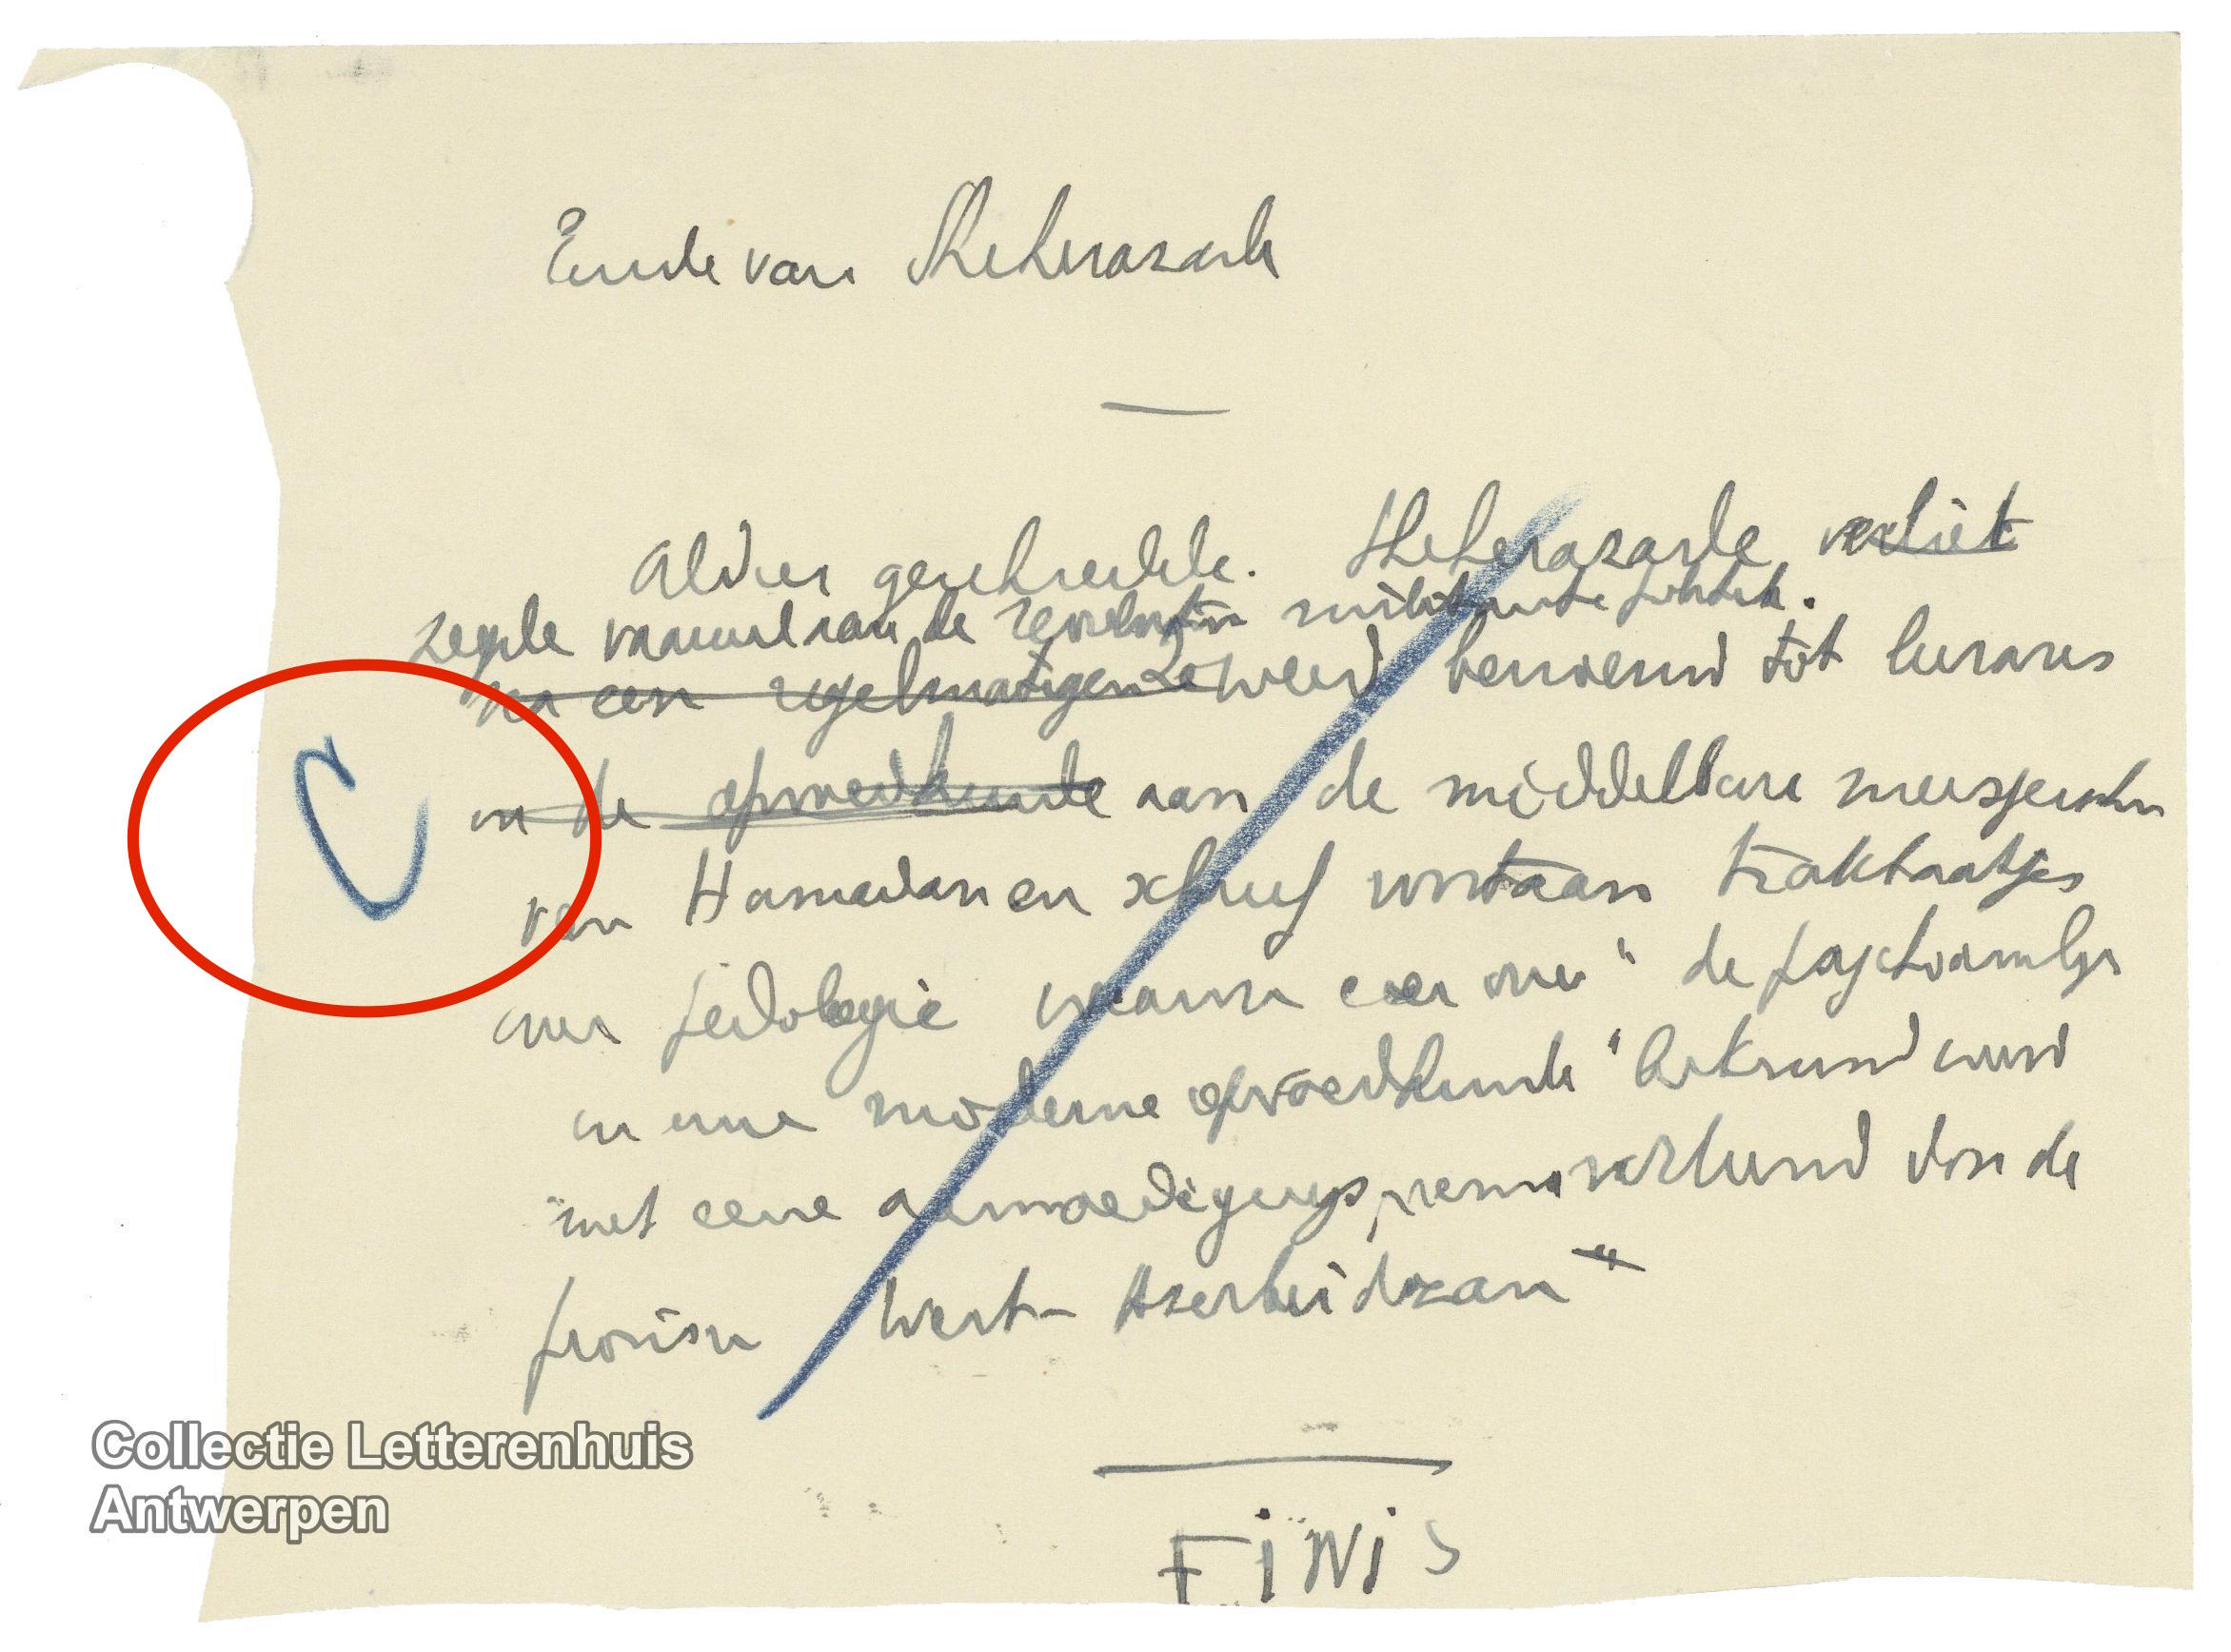 Einde van Sheherazade
Aldus geschiedde. Sheherazade verliet
zegde vaarwel aan de revolutie militante politiek.
na een regelmatigen werd benoemd tot lerares
in de opvoedkunde aan de middelbare meisjesschool
C
van Hamadan en schreef voortaan traktaatjes
over pedologie waarvan een over "de psychoanalyse
en eene moderne opvoedkunde" bekroond werd
met eene aanmoedigingspremie verleend door de
provincie West-Azerbeidzan"
FiNiS
Collectie Letterenhuis
Antwerpen